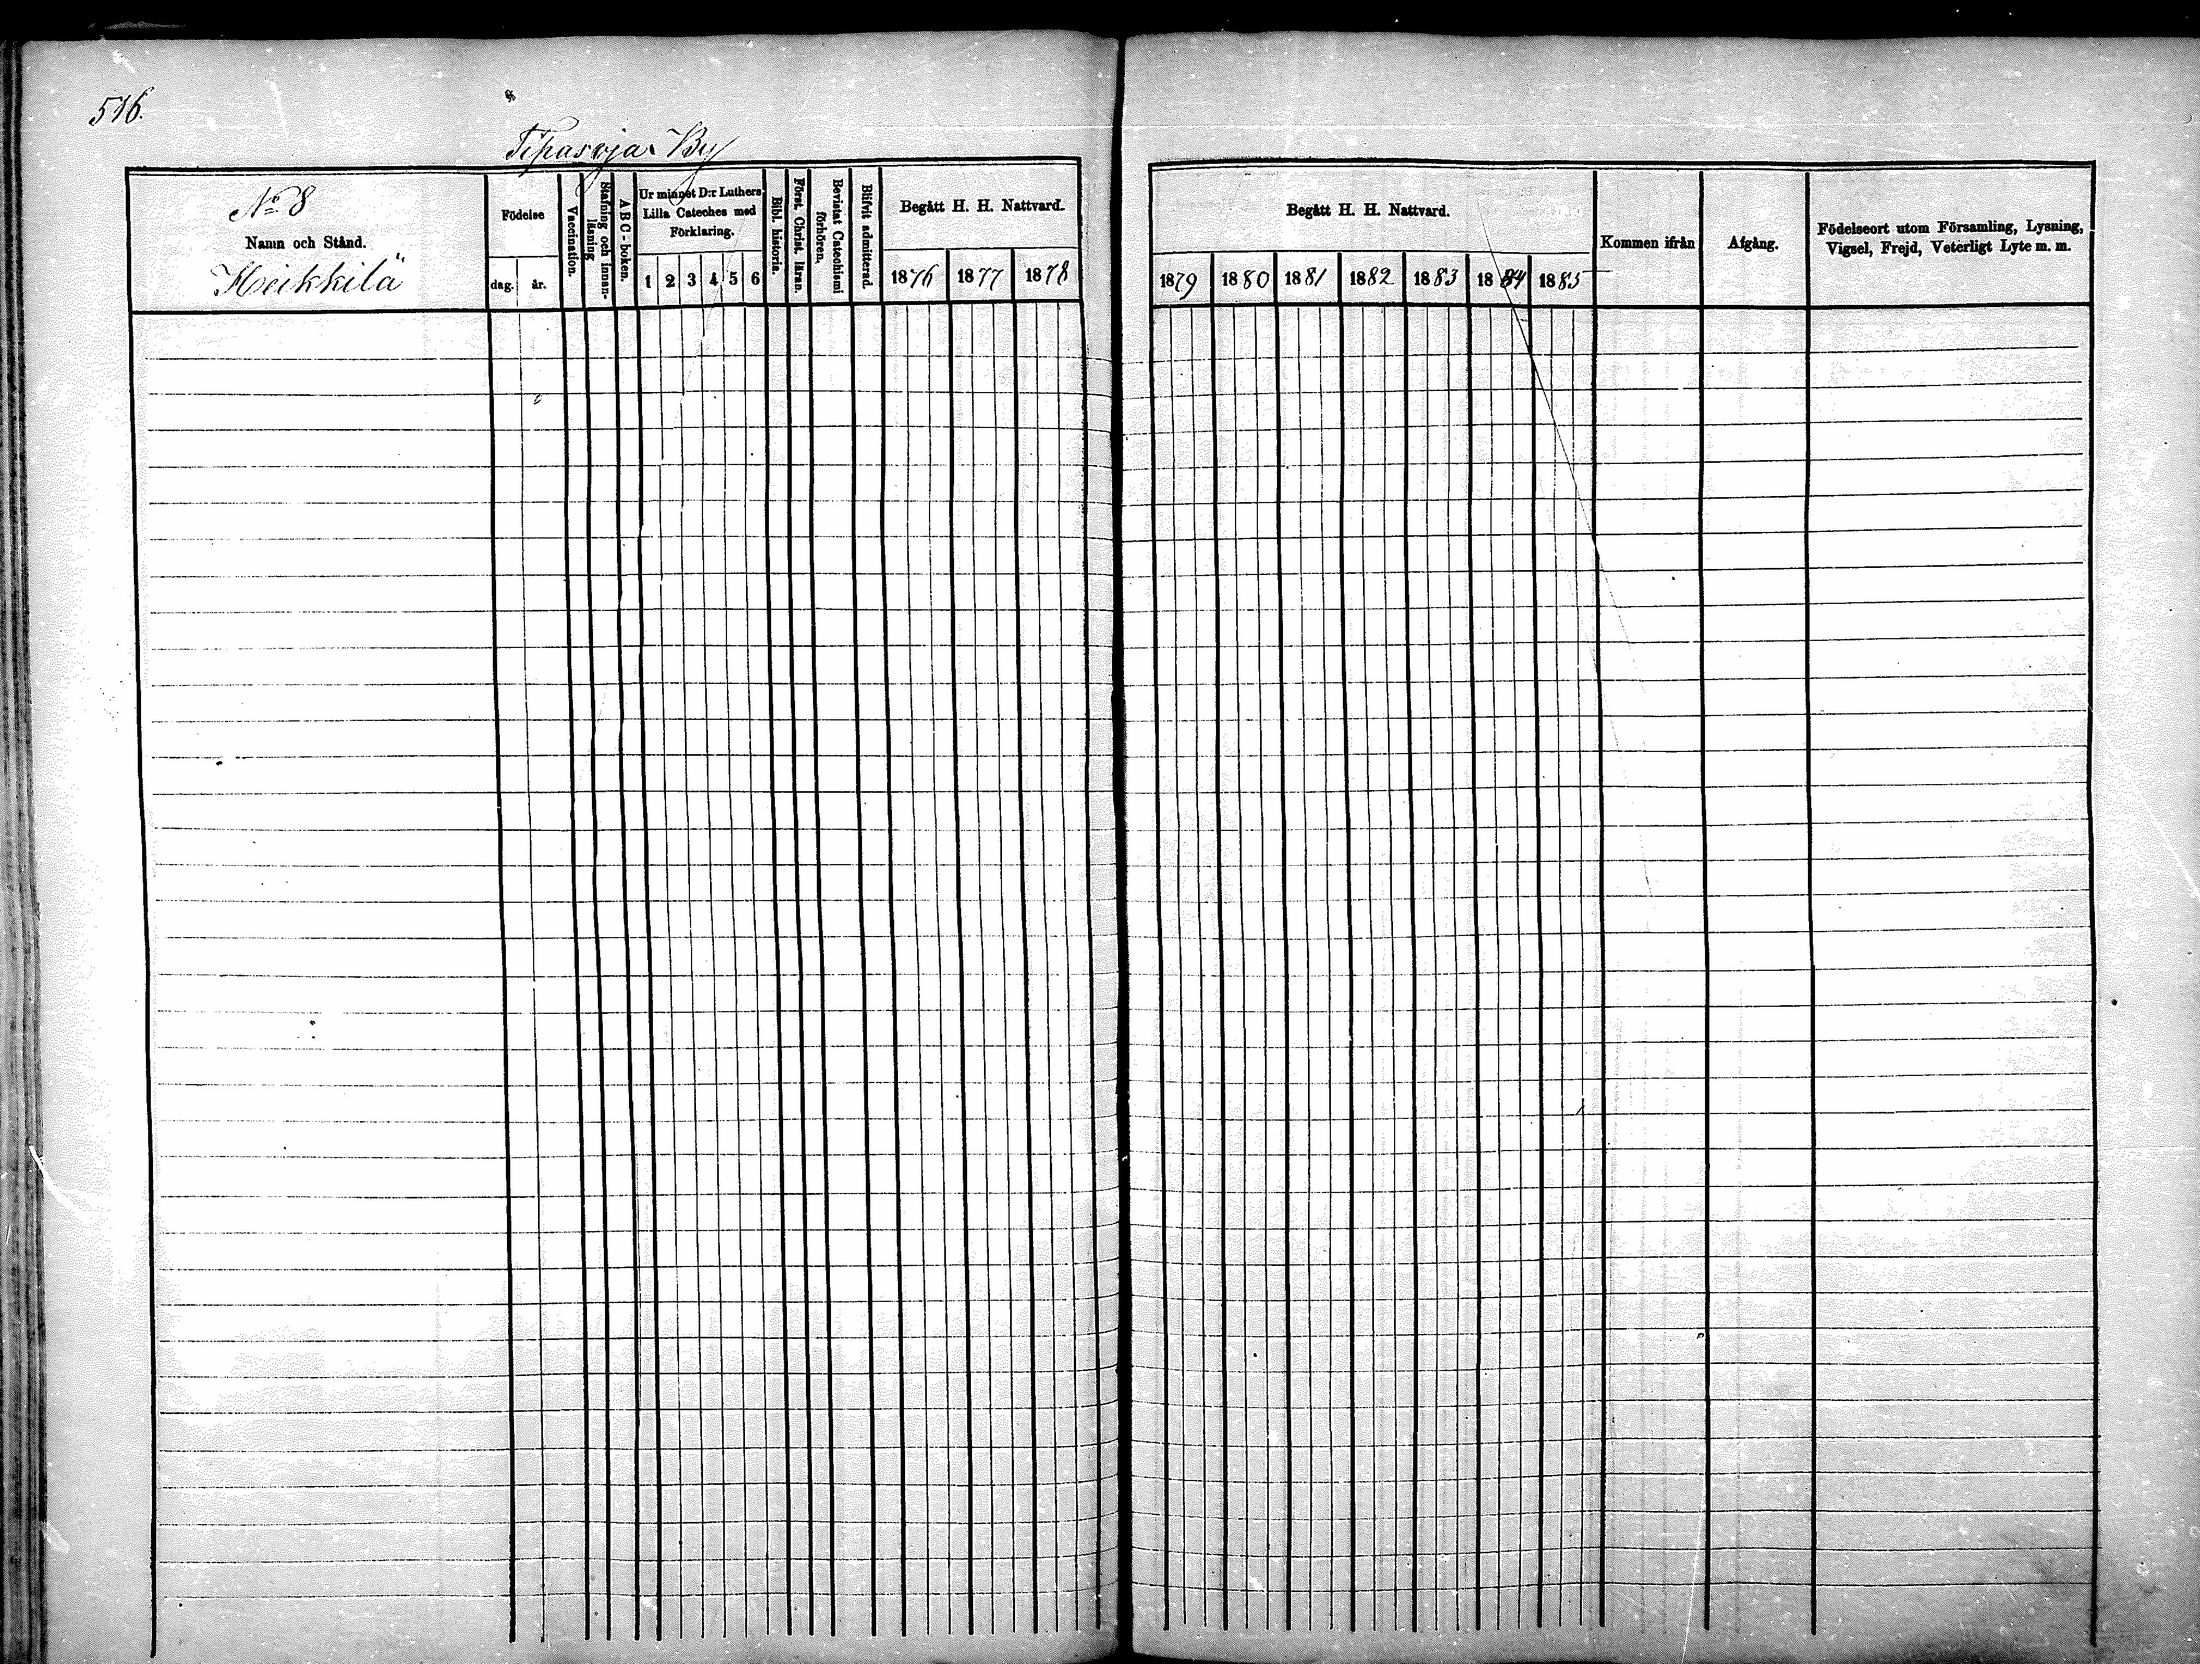 516.
Tipasoja By
No 8
Namn och Stånd.
Heikkilä
Födelse
dag. år.
Vaccination.
Stafning och innan-
läsning
ABC-boken.
Ur minnet D:r Luthers
Lilla Cateches med
Förklaring.
1 2 3 4 5 6
Bibl. historia.
Först. Christ. läran.
Bevistat Catechismi
förhören.
Blifvit admitterad.
Begått H. H. Nattvard.
1876 1877 1878
Begått H. H. Nattvard.
1879 1880 1881 1882 1883 1884 1885
Kommen ifrån
Afgång.
Födelseort utom Församling, Lysning,
Vigsel, Frejd, Veterligt Lyte m. m.